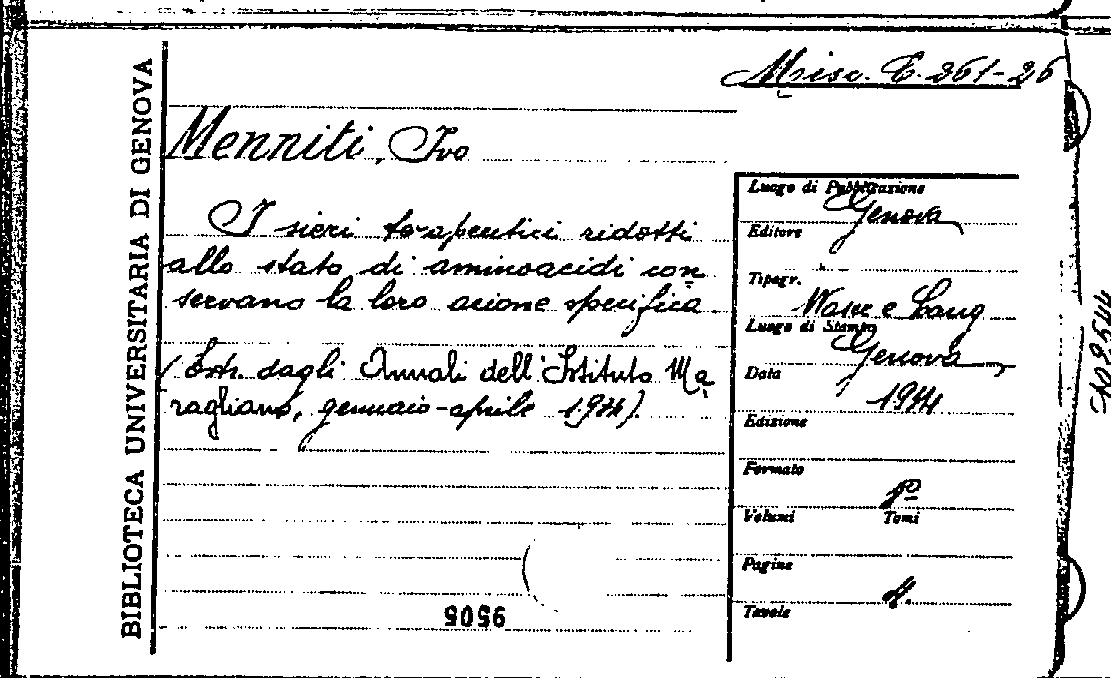 BIBLIOTECA UNIVERSITARIA DI GENOVA
Misc. E. 261-26
Menniti, Ivo
I sieri terapeutici ridotti
allo stato di aminoacidi con
servano la loro azione specifica
(Estr. dagli Annali dell'Istituto Ma
ragliano, gennaio-aprile 1944).
Luogo di Pubblicazione
Genova
Editore
Tipogr.
e Lang
Luogo di Stampa
Genova
Data
1944
Edizione
Formato
8º
Volumi Tomi
Pagine
4.
Tavole
9505